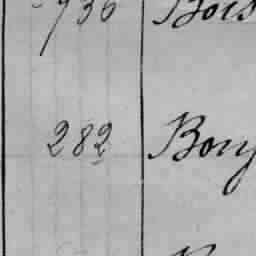 736 Bois
282 Bouy